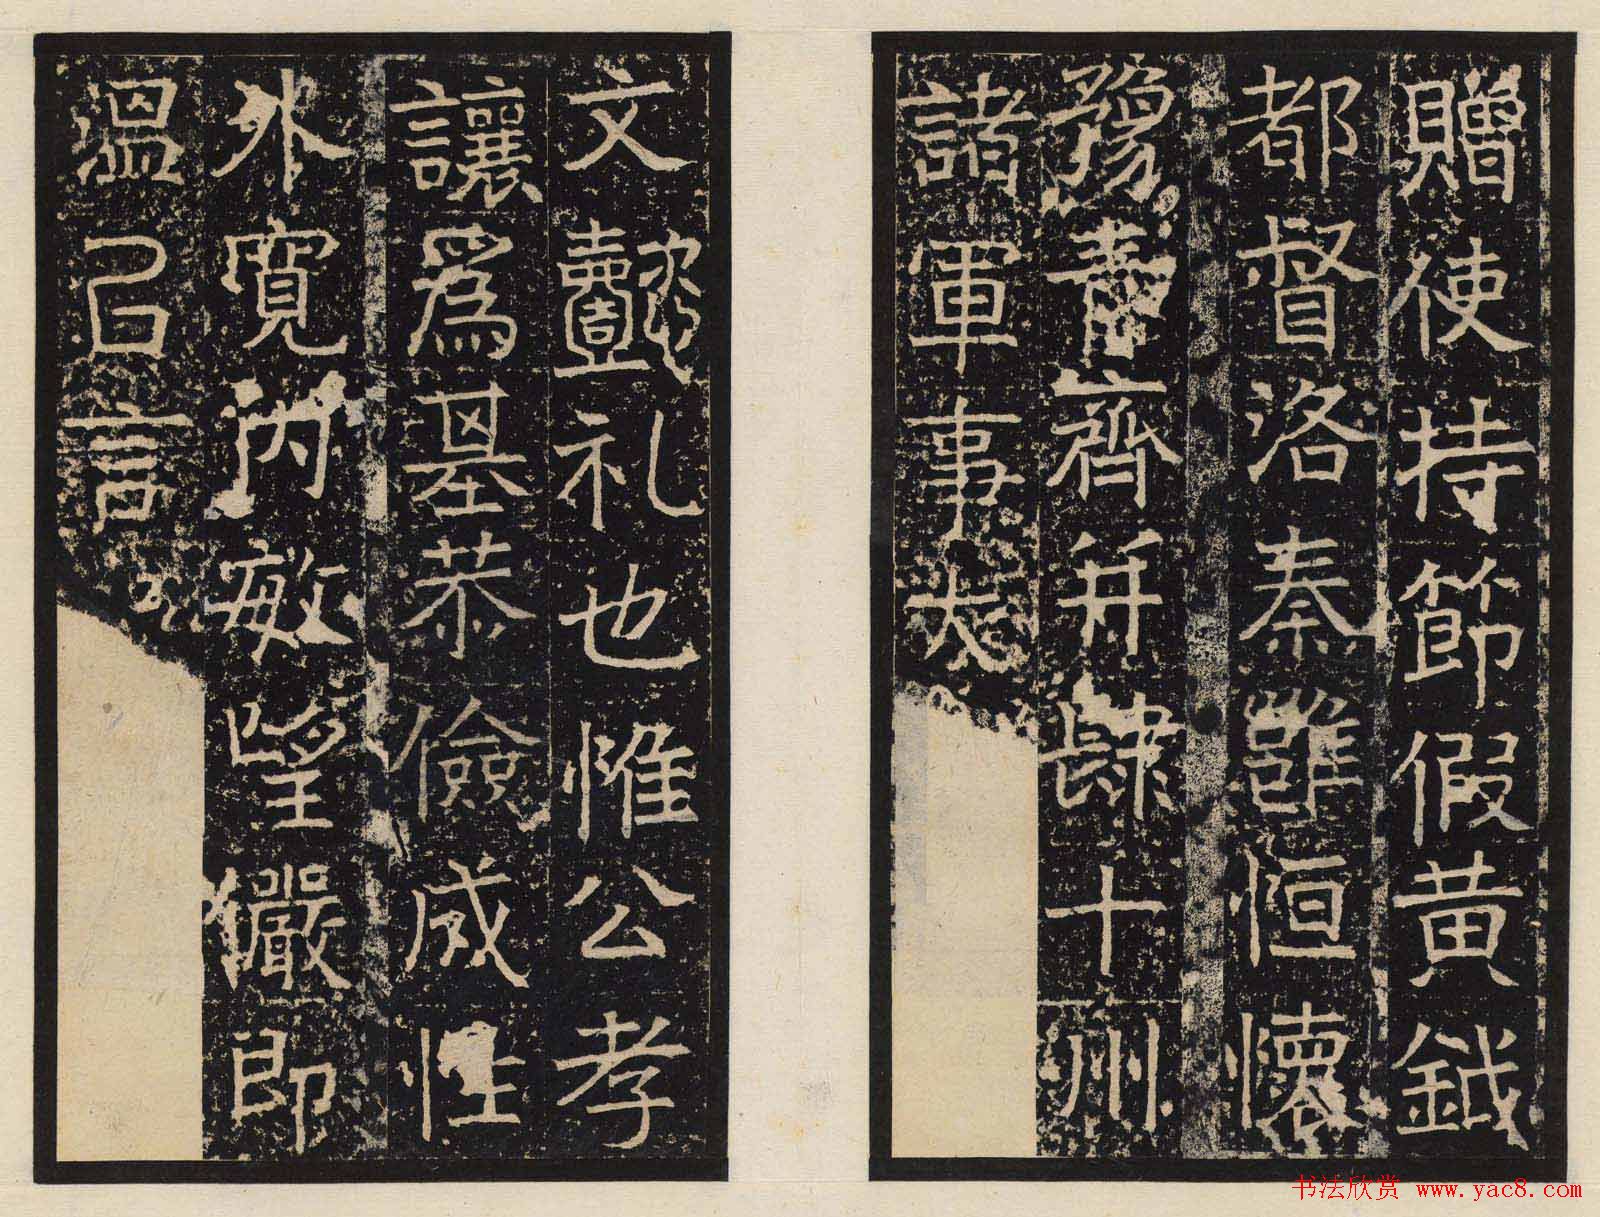 贈使持節假黃鉞
都督洛秦雍恒懷
豫青齊并肆十州
諸軍事大
文懿礼也惟公孝
讓爲基恭儉成性
外寬內敏望儼即
溫㠯言
书法欣赏 www.yac8.com